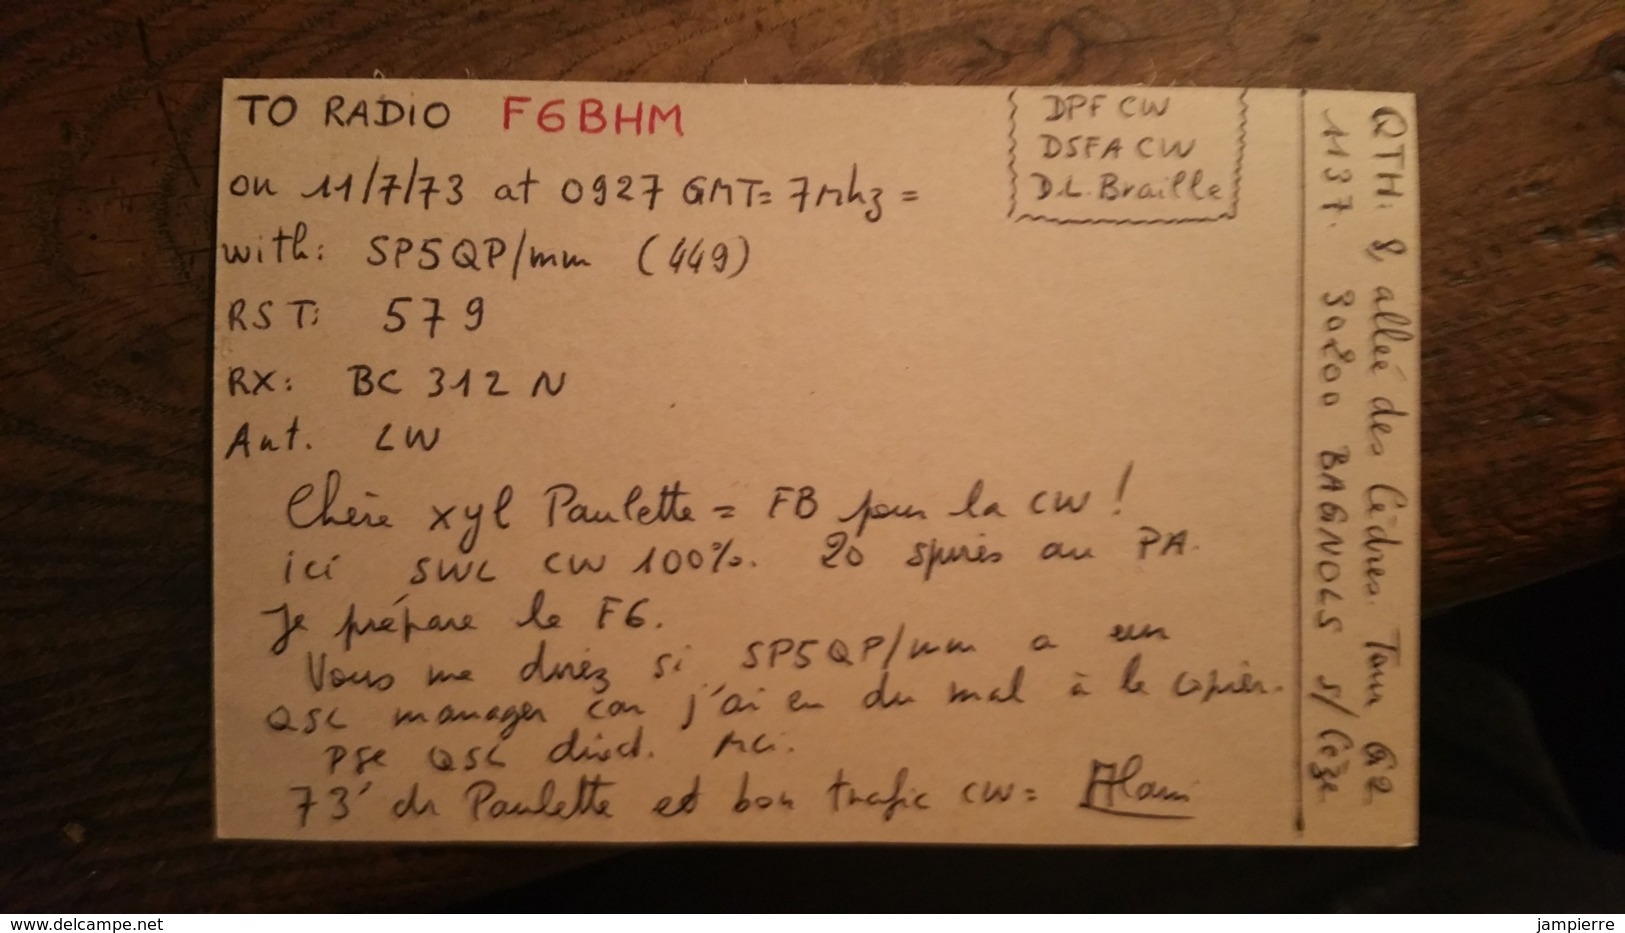 TO RADIO F6BHM
on 11/7/73 at 0927 GMT= 7Mhz =
with: SP5QP/mm (449)
RST: 579
RX: BC 312 N
Ant. LW
Chère xyl Paulette = FB pour la CW !
ici SWL CW 100%. 20 spires au PA.
Je prépare le F6.
Vous me direz si SP5QP/mm a un
QSL manager car j'ai eu du mal à le copier.
PSE QSL direct. Mci.
73' dr Paulette et bon trafic CW = Alain
DPF CW
DSFA CW
D.L. Braille
QTH: 8 allée des Cèdres. Tour G2
1137. 30200 BAGNOLS S/ Cèze
www.delcampe.net
jampierre